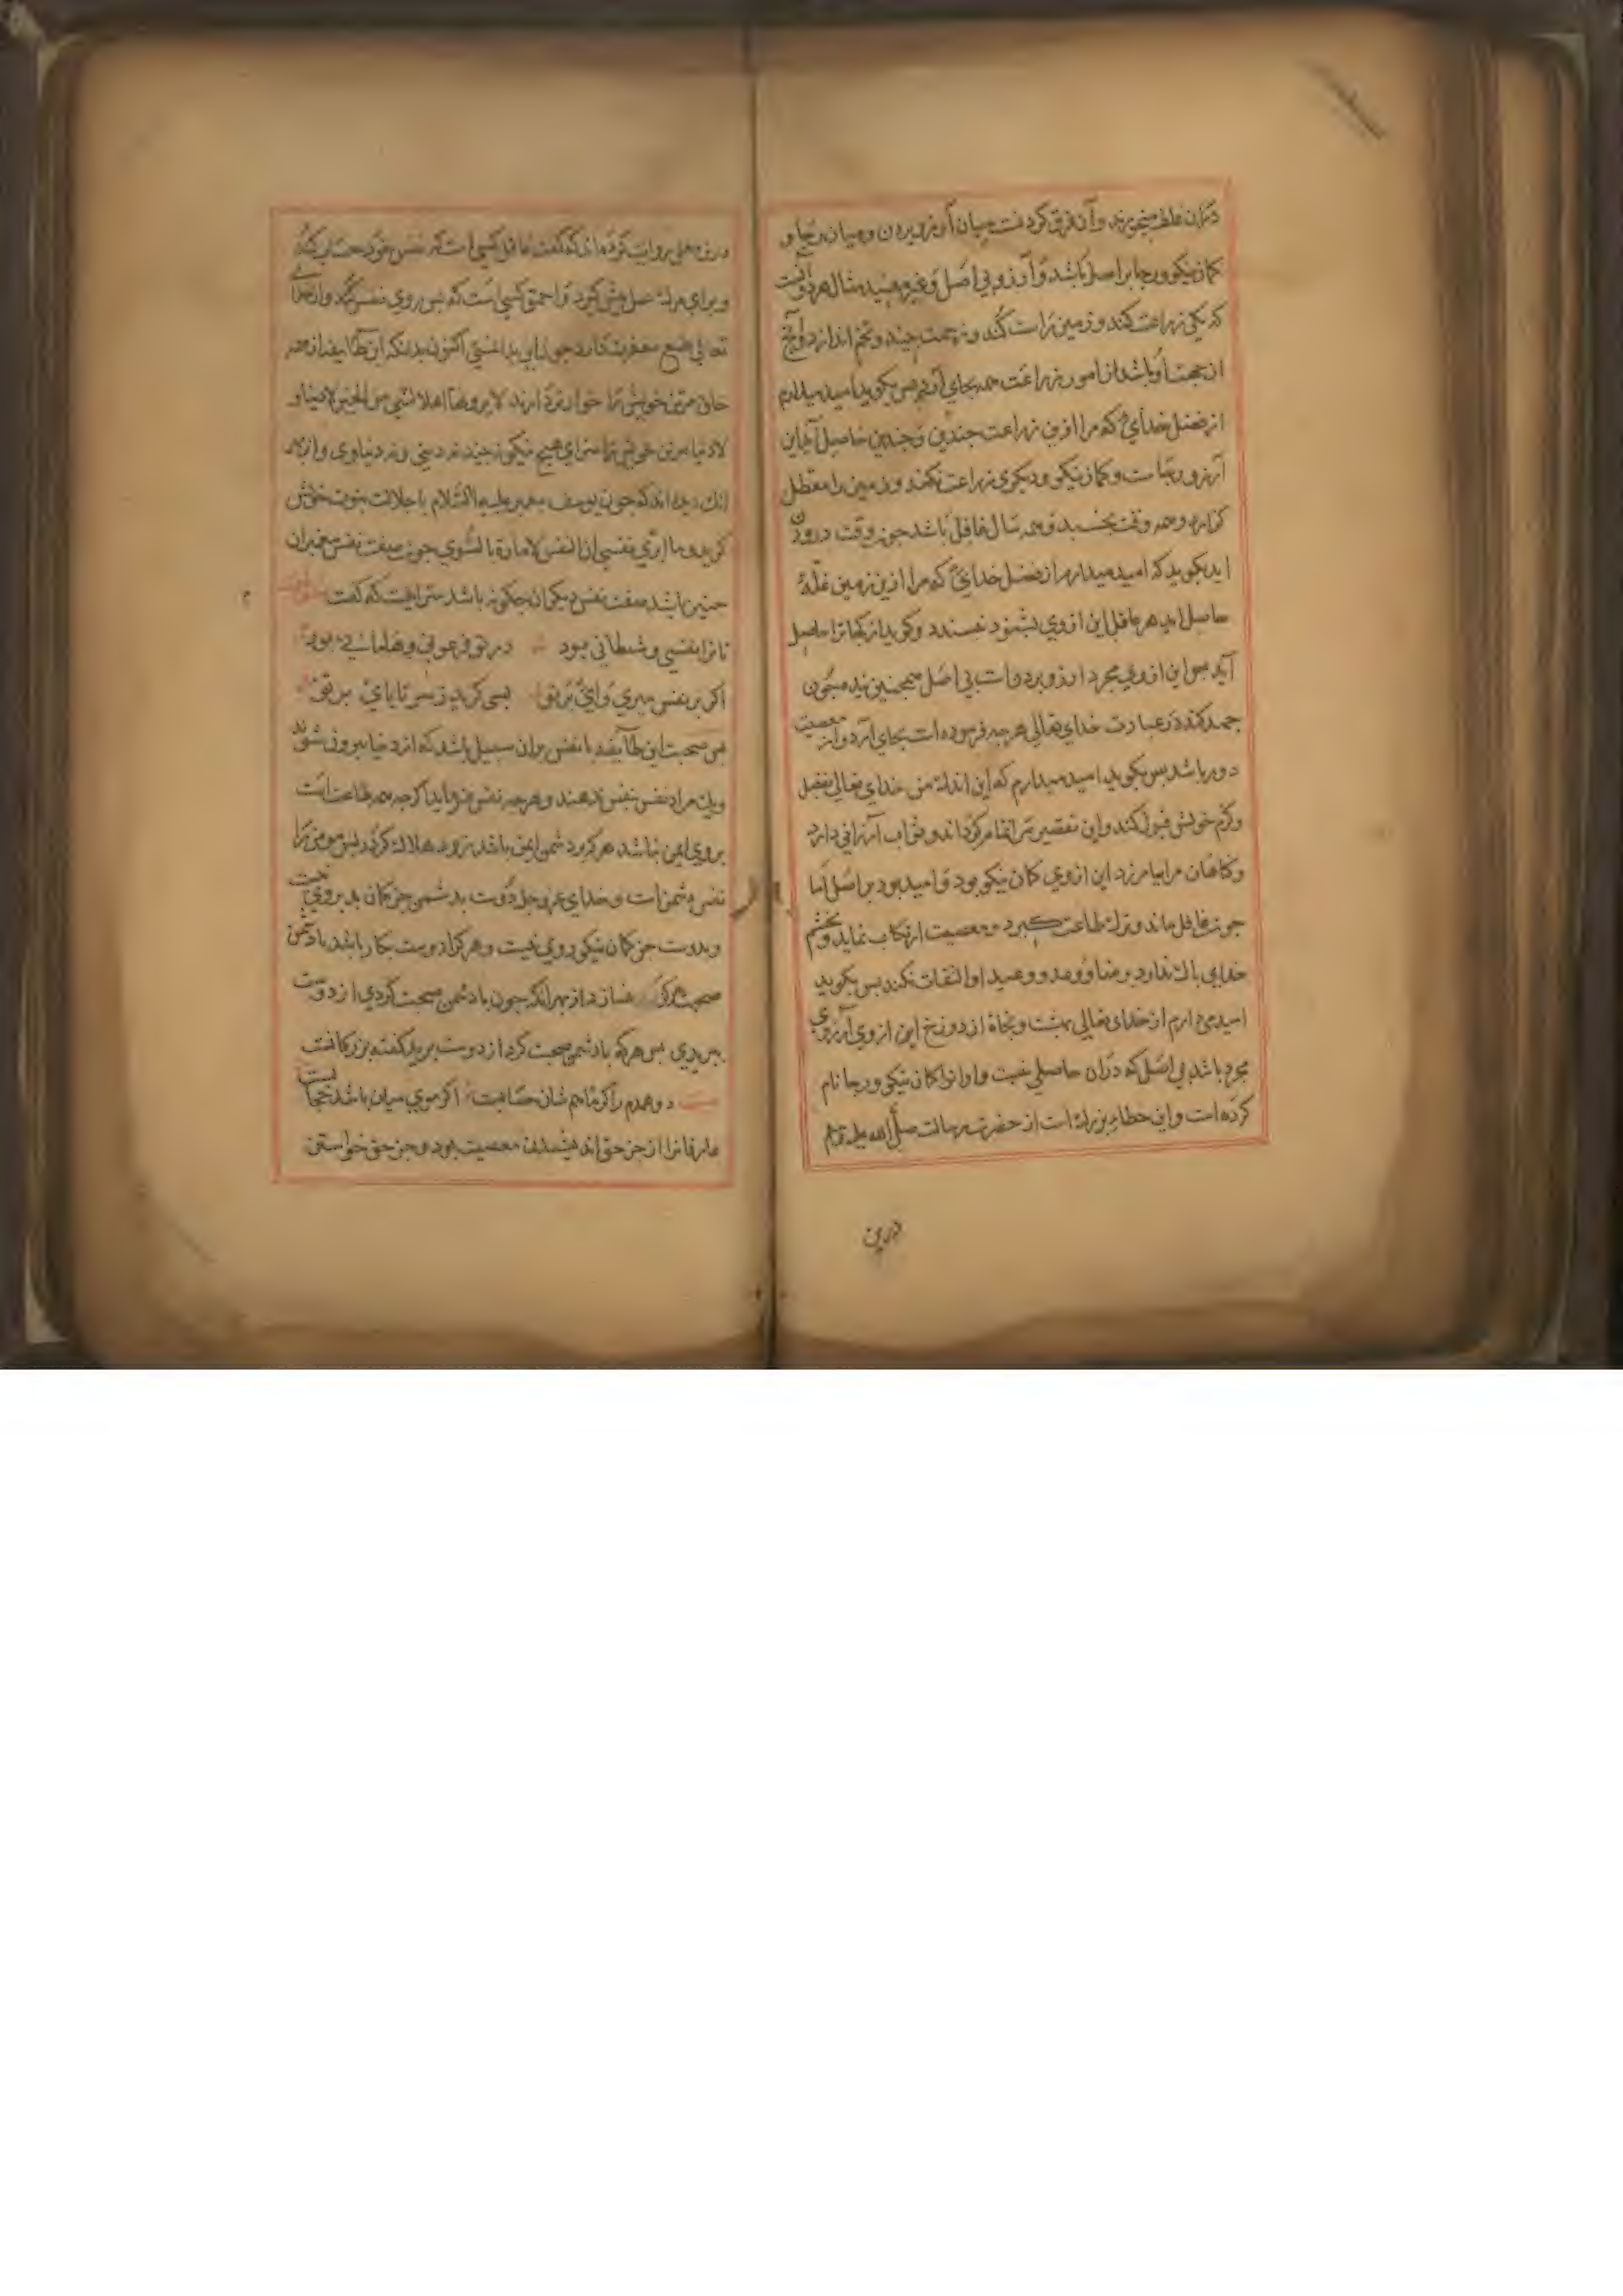 دران غلط میخورند و آن فرق کردنست میان آرزو بردن و میان رجا و
کمان نیکو و رجا بر اصل باشد و آرزو بی اصل و غیر مفید مثال هر دو آنست
که یکی زراعت کند و زمین راست کند و زحمت بیند و تخم اندازد و آنچ
از جهت او باشد از امور زراعت همه بجای آرد پس بکوید امید میدارم
از فضل خدای که مرا ازین زراعت چندین و چندین حاصل آید این
آرزو رجاست و کمان نیکو و دیکری زراعت نکند و زمین را معطل
کزارد و همه وقت بخسبد و همه سال غافل باشد چون وقت درودن
اید بکوید که امید میدارم از فضل خدای که مرا ازین زمین غله
حاصل اید هر عاقل این از وی نسندد و کوید از کجا ترا حاصل
آید این از وی مجرد ارزو بردنست بی اصل همچنین بنده چون
جهد کند در عبادت خدای تعالی هرچه فرموده است بجای آرد و از معصیت
دور باشد پس بکوید امید میدارم که این اندک من خدای تعالی بفضل
و کرم خویش قبول کند و این تقصیر تمام کرداند و ثواب ارزانی دارد
و کناهان مرا بیامرزد این از وی کمان نیکو بود و امید بود بر اصل اما
چون غافل ماند و ترک طاعت کیرد و معصیت ارتکاب نماید و بخشم
خدای باک ندارد و برضا و وعد و وعید او التفات نکند پس بکوید
امید میدارم از خدای تعالی بهشت و نجاة از دوزخ این از وی آرزوی
مجرد باشد بی اصل که دران حاصلی نیست و او انرا کمان نیکو و رجا نام
کرده است و این خطاء بزرک است از حضرت رسالت صلی الله علیه وسلم
درین
درین معنی روایت کرده اند که گفت عاقل کسی است که نفس خود حساب کند
و برای مرک عمل پیش کیرد و احمق کسی است که پس روی نفس کند و از خدای
تعالی طمع مغفرت دارد چون این بدانستی اکنون بدانکه این طایفه از همه
خلق مرتن خویش را خوارتر دارند لا یرونها اهلا لشیء من الخیر لا دنیا و
لا دینا مرتن خویش را سزای هیچ نیکو نه بینند نه دینی و نه دنیاوی و از بهر
انک دیده اند که چون یوسف پیغمبر علیه السلام با جلالت نبوت خویش
کوید و ما ابری نفسی ان النفس لامارة بالسوء چون صفت نفس پیغمبران
چنین باشد صفت نفس دیکران چکونه باشد که گفت
تا ترا نفسی و شیطانی بود در تو فرعونی و هامانی بود
اکر بر نفس میری وای بر تو بسی کرید ز سر تا پای بر تو
پس صحبت این طایفه با نفس بران سبیل باشد که از دنیا بیرون شوند
و یک مراد نفس بنفس ندهند و هرچه نفس فرماید اکرچه همه طاعت است
بر وی ایمن نباشد هر که بر دشمن ایمن باشد زود هلاک کردد پس مومن را
نفس دشمن است و خدای عز و جل دوست بدشمن جز کمان بد بردن نیست
و بدوست جز کمان نیکو روی نیست و هر کرا دوست بکار باشد با دشمن
صحبت هرگز نسازد از بهر آنکه چون با دشمن صحبت کردی از دوست
ببریدی پس هرکه با دشمن صحبت کرد از دوست برید گفته بزرکانست
دو همدم را کر باهم شان حسابست اکر مویی میان باشد حجابست
عارفانرا از جز حق اندیشیدن معصیت بود و جز حق خواستن